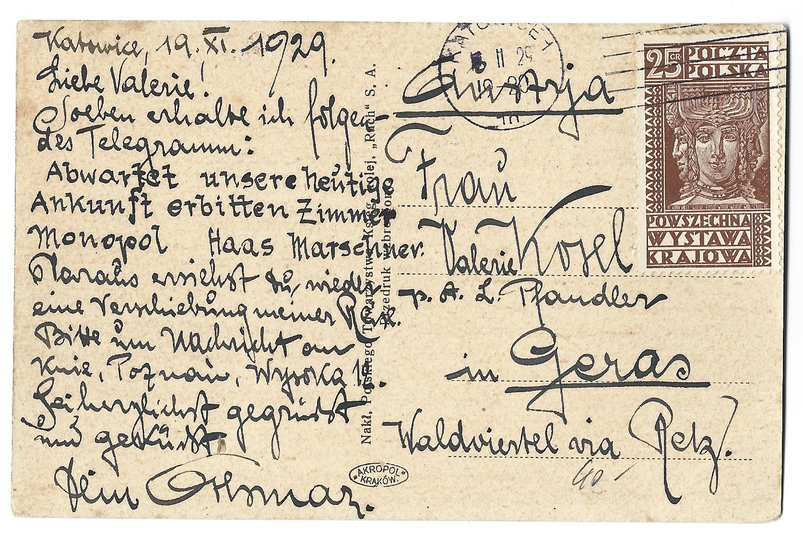 Katowice, 19. XI. 1929.
Liebe Valerie!
Soeben erhalte ich folgen-
des Telegramm:
Abwartet unsere heutige
Ankunft erbitten Zimmer
Monopol Haas Marschner.
Daraus ersiehst du, wieder
eine Verschiebung meiner
Bitte um Nachricht an
Poznań, Wysoka
Sei herzlichst gegrüsst
und geküsst
Dein Othmar.
Nakł. Polskiego Towarzystwa Księg. Kolej. „Ruch” S. A.
AKROPOL
KRAKÓW
KATOWICE 1
II 29
25 GR POCZTA
POLSKA
POWSZECHNA
WYSTAWA
KRAJOWA
Austrja
Frau
Valerie Kosel
p. A. L. Pfandler
in Geras
Waldviertel via Retz.